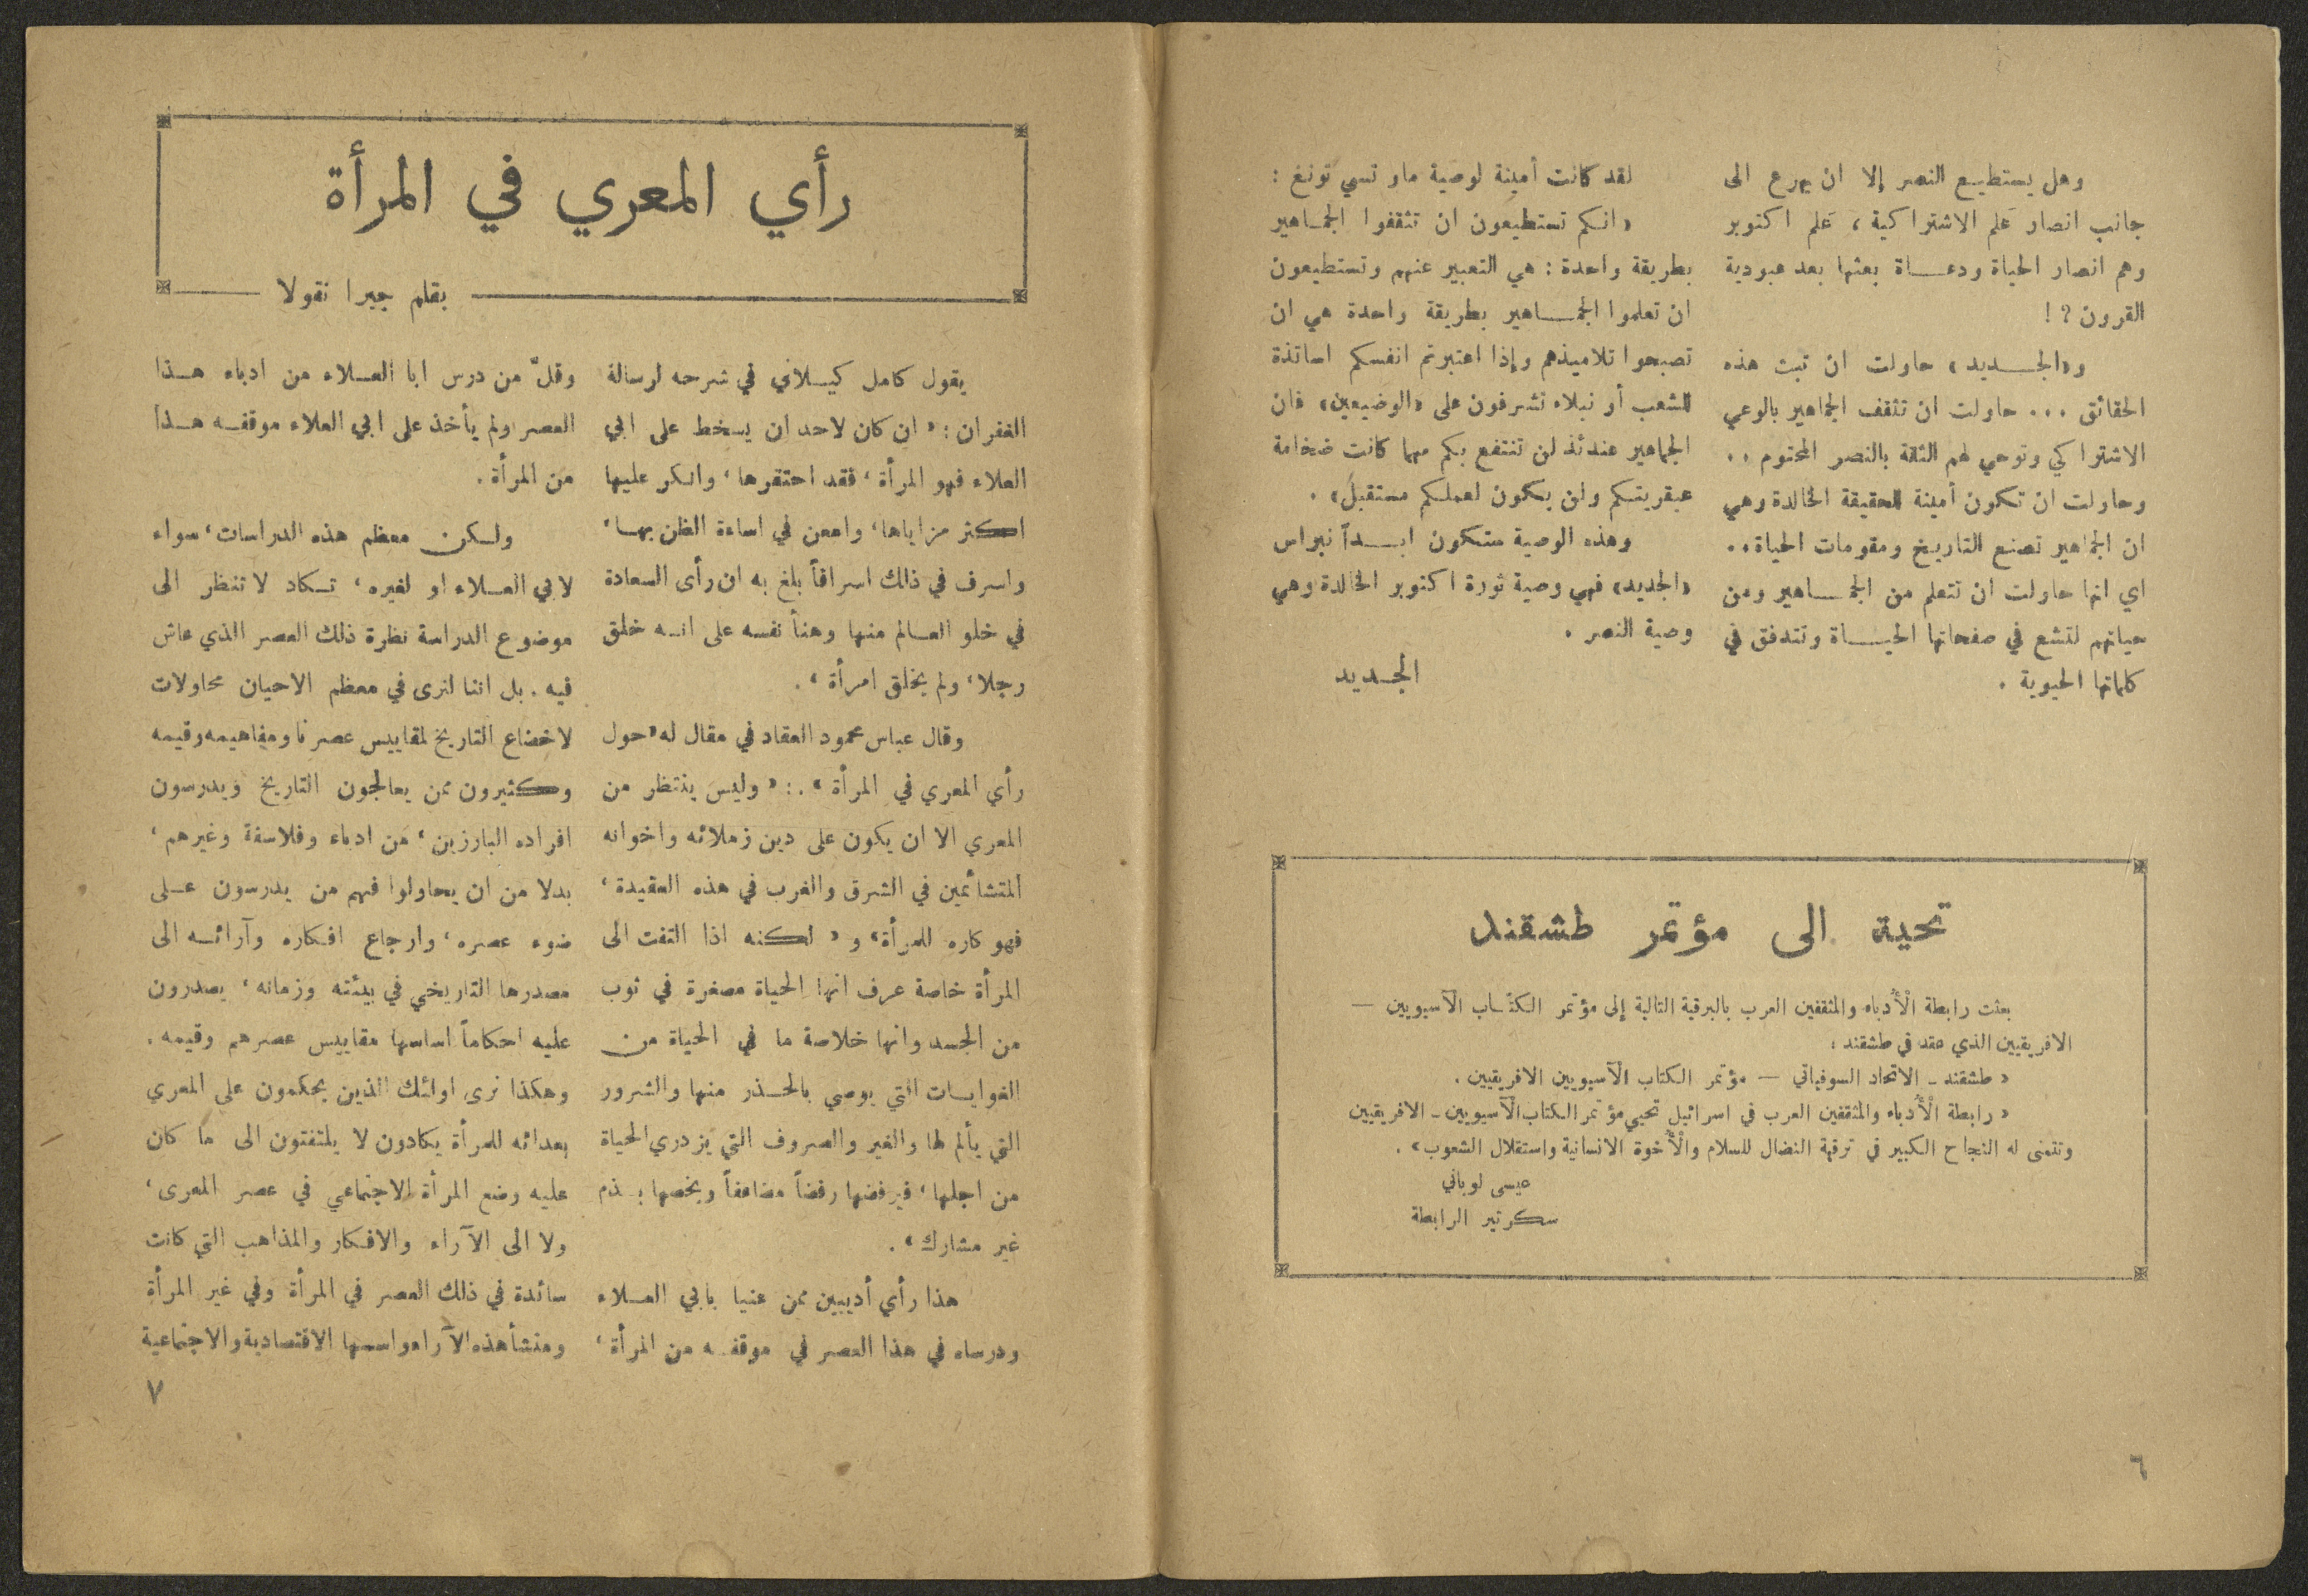 وهل يستطيع النصر إلا ان يهرع الى
جانب انصار عَلم الاشتراكية، عَلم اكتوبر
وهم انصار الحياة ودعاة بعثها بعد عبودية
القرون؟!
و«الجديد» حاولت ان تبث هذه
الحقائق ... حاولت ان تثقف الجماهير بالوعي
الاشتراكي وتوحي لهم الثقة بالنصر المحتوم ..
وحاولت ان تكون أمينة للحقيقة الخالدة وهي
ان الجماهير تصنع التاريخ ومقومات الحياة..
اي انها حاولت ان تتعلم من الجماهير ومن
حياتهم لتشع في صفحاتها الحياة وتتدفق في
كلماتها الحيوية .
لقد كانت أمينة لوصية ماو تسي تونغ :
«انكم تستطيعون ان تثقفوا الجماهير
بطريقة واحدة : هي التعبير عنهم وتستطيعون
ان تعلموا الجماهير بطريقة واحدة هي ان
تصبحوا تلاميذهم وإذا اعتبرتم انفسكم اساتذة
للشعب أو نبلاء تشرفون على «الوضيعين» فان
الجماهير عندئذ لن تنتفع بكم مهما كانت ضخامة
عبقريتكم ولن يكون لعملكم مستقبل» .
وهذه الوصية ستكون ابداً نبراس
«الجديد» فهي وصية ثورة اكتوبر الخالدة وهي
وصية النصر .
الجديد
تحية الى مؤتمر طشقند
بعثت رابطة الأُدباء والمثقفين العرب بالبرقية التالية إلى مؤتمر الكتّاب الآسيويين —
الافريقيين الذي عقد في طشقند :
« طشقند - الاتحاد السوفياتي — مؤتمر الكتاب الآسيويين الافريقيين .
« رابطة الأُدباء والمثقفين العرب في اسرائيل تحيي مؤتمر الكتاب الآسيويين - الافريقيين
وتتمنى له النجاح الكبير في ترقية النضال للسلام والأُخوة الانسانية واستقلال الشعوب» .
عيسى لوباني
سكرتير الرابطة
٦
رأي المعري في المرأة
بقلم جبرا نقولا
يقول كامل كيلاني في شرحه لرسالة
الغفران : « ان كان لاحد ان يسخط على ابي
العلاء فهو المرأة، فقد احتقرها، وانكر عليها
اكثر مزاياها، وامعن في اساءة الظن بها،
واسرف في ذلك اسرافاً بلغ به ان رأى السعادة
في خلو العالم منها وهنأ نفسه على انه خلق
رجلا، ولم يخلق امرأة » .
وقال عباس محمود العقاد في مقال له «حول
رأي المعري في المرأة » . : « وليس ينتظر من
المعري الا ان يكون على دين زملائه واخوانه
المتشائمين في الشرق والغرب في هذه العقيدة ،
فهو كاره للمرأة» و « لكنه اذا التفت الى
المرأة خاصة عرف انها الحياة مصغرة في ثوب
من الجسد وانها خلاصة ما في الحياة من
الغوايات التي يوصي بالحذر منها والشرور
التي يألم لها والغير والصروف التي يزدري الحياة
من اجلها، فيرفضها رفضاً مضاعفاً ويخصها بذم
غير مشارك » .
هذا رأي أديبين ممن عنيا بابي العلاء
ودرساه في هذا العصر في موقفه من المرأة ،
وقلّ من درس ابا العلاء من ادباء هذا
العصر ولم يأخذ على ابي العلاء موقفه هذا
من المرأة .
ولكن معظم هذه الدراسات، سواء
لابي العلاء او لغيره، تكاد لا تنظر الى
موضوع الدراسة نظرة ذلك العصر الذي عاش
فيه . بل اننا لنرى في معظم الاحيان محاولات
لاخضاع التاريخ لمقاييس عصرنا ومفاهيمه وقيمه
وكثيرون ممن يعالجون التاريخ ويدرسون
افراده البارزين، من ادباء وفلاسفة وغيرهم ،
بدلا من ان يحاولوا فهم من يدرسون على
ضوء عصره، وارجاع افكاره وآرائه الى
مصدرها التاريخي في بيئته وزمانه ، يصدرون
عليه احكاماً اساسها مقاييس عصرهم وقيمه .
وهكذا نرى اولئك الذين يحكمون على المعري
بعدائه للمرأة يكادون لا يلتفتون الى ما كان
عليه وضع المرأة الاجتماعي في عصر المعرى ،
ولا الى الآراء والافكار والمذاهب التي كانت
سائدة في ذلك العصر في المرأة وفي غير المرأة
ومنشأ هذه الآراء واسسها الاقتصادية والاجتماعية
٧